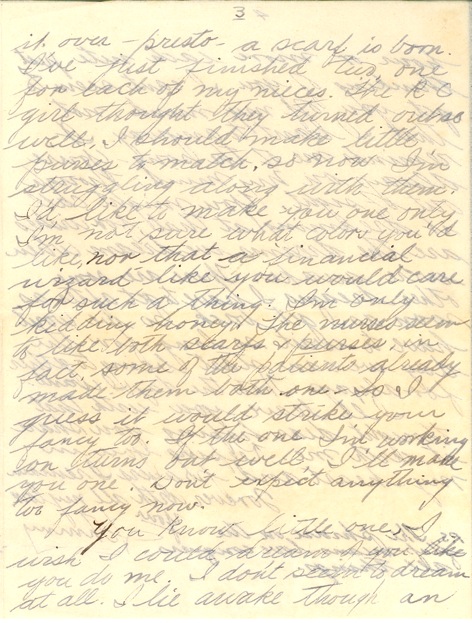 3
it over - presto - a scarf is born.
I've just finished two, one
for each of my nieces. The R C
girl thought they turned out so
well, I should make little
purses to match, so now I'm
struggling along with them.
I'd like to make you one only
I'm not sure what colors you'd
like, nor that a financial
wizard like you would care
for such a thing. I'm only
kidding honey. The nurses seem
to like both scarfs & purses, in
fact, some of the patients already
made them both one. So I
guess it would strike your
fancy too. If the one I'm working
on turns out well, I'll make
you one. Don't expect anything
too fancy now.
You know little one, I
wish I could dream of you like
you do me. I don't seem to dream
at all. I lie awake though an